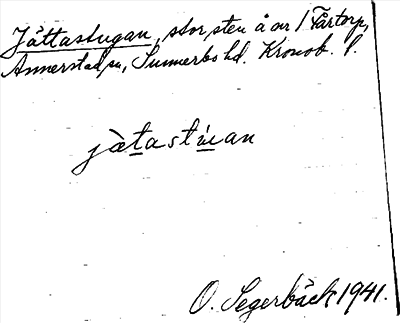 Jättastugan, stor sten å ar 1 Fårtorp,
Annerstad sn, Sunnerbo hd. Kronob. l.
jätastúan
O. Segerbäck 1941.